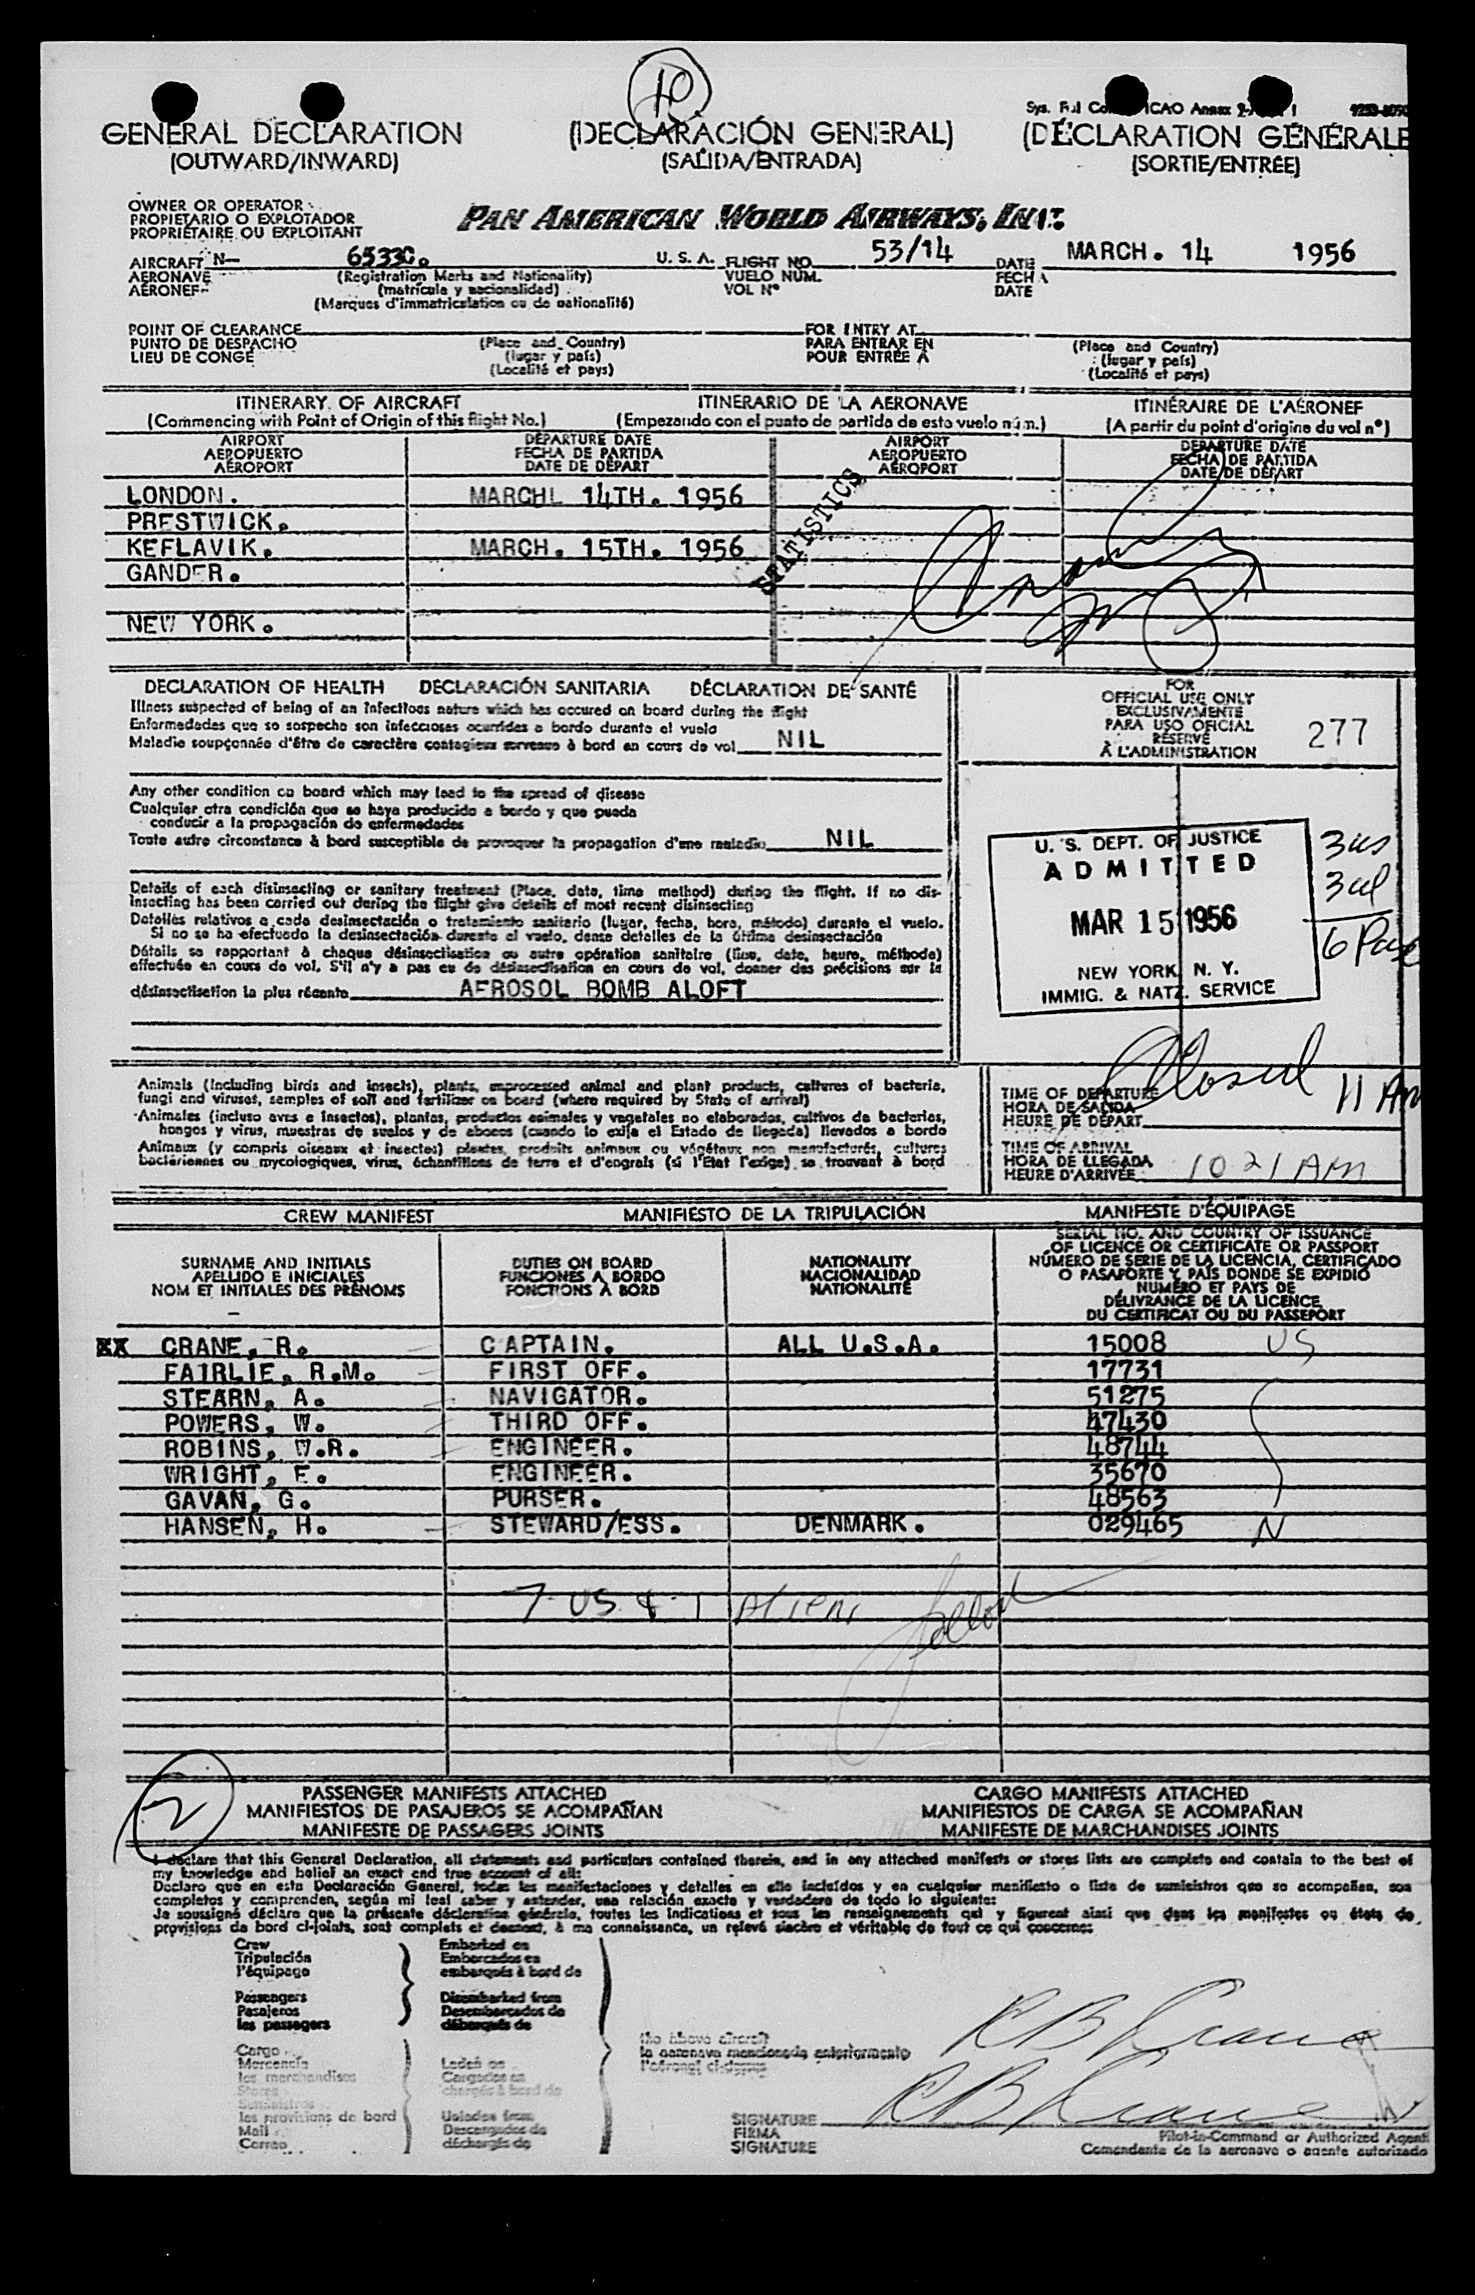 10
Sys. Ful Co ICAO Annex 9
GENERAL DECLARATION (DECLARACIÓN GENERAL) (DÉCLARATION GÉNÉRALE
(OUTWARD/INWARD) (SALIDA/ENTRADA) (SORTIE/ENTRÉE)
OWNER OR OPERATOR
PROPIETARIO O EXPLOTADOR
PROPRIÉTAIRE OU EXPLOITANT
PAN AMERICAN WORLD AIRWAYS, INC.
AIRCRAFT N- 65330. U. S. A. FLIGHT NO. 53/14 DATE MARCH. 14 1956
AERONAVE (Registration Marks and Nationality) VUELO NUM. FECHA
AÉRONEF (matrícula y nacionalidad) VOL Nº DATE
(Marques d'immatriculation ou de nationalité)
POINT OF CLEARANCE FOR ENTRY AT
PUNTO DE DESPACHO (Place and Country) PARA ENTRAR EN (Place and Country)
LIEU DE CONGÉ (lugar y país) POUR ENTRÉE À (lugar y país)
(Localité et pays) (Localité et pays)
ITINERARY OF AIRCRAFT ITINERARIO DE LA AERONAVE ITINÉRAIRE DE L'AÉRONEF
(Commencing with Point of Origin of this flight No.) (Empezando con el punto de partida de esto vuelo núm.) (A partir du point d'origine du vol nº)
AIRPORT DEPARTURE DATE AIRPORT DEPARTURE DATE
AEROPUERTO FECHA DE PARTIDA AEROPUERTO FECHA DE PARTIDA
AÉROPORT DATE DE DÉPART AÉROPORT DATE DE DÉPART
LONDON. MARCHL 14TH. 1956
PRESTWICK.
KEFLAVIK. MARCH. 15TH. 1956
GANDER.
NEW YORK.
STATISTICS
DECLARATION OF HEALTH DECLARACIÓN SANITARIA DÉCLARATION DE SANTÉ
Illness suspected of being of an infectious nature which has occured on board during the flight
Enfermedades que so sospecho son infecciosas ocurridas a bordo durante el vuelo
Maladie soupçonnée d'être de caractère contagieux survenue à bord en cours de vol NIL
Any other condition on board which may lead to the spread of disease
Cualquier otra condición que se haya producido a bordo y que pueda
conducir a la propagación de enfermedades
Toute autre circonstance à bord susceptible de provoquer la propagation d'une maladie NIL
Details of each disinsecting or sanitary treatment (Place, date, time method) during the flight. If no dis-
insecting has been carried out during the flight give details of most recent disinsecting
Detalles relativos a cada desinsectación o tratamiento sanitario (lugar, fecha, hora, método) durante el vuelo.
Si no se ha efectuado la desinsectación durante el vuelo, dense detalles de la última desinsectación
Détails se rapportant à chaque désinsectisation ou autre opération sanitaire (lieu, date, heure, méthode)
effectuée en cours de vol. S'il n'y a pas eu de désinsectisation en cours de vol, donner des précisions sur la
désinsectisation la plus récente AEROSOL BOMB ALOFT
FOR
OFFICIAL USE ONLY
EXCLUSIVAMENTE
PARA USO OFICIAL
RÉSERVÉ
À L'ADMINISTRATION
277
U. S. DEPT. OF JUSTICE
ADMITTED
MAR 15 1956
NEW YORK, N. Y.
IMMIG. & NATZ. SERVICE
3 us
3 al
6 Pass
Closed 11 AM
Animals (including birds and insects), plants, unprocessed animal and plant products, cultures of bacteria,
fungi and viruses, samples of soil and fertilizer on board (where required by State of arrival)
Animales (incluso aves e insectos), plantas, productos animales y vegetales no elaborados, cultivos de bacterias,
hongos y virus, muestras de suelos y de abonos (cuando lo exija el Estado de llegada) llevados a bordo
Animaux (y compris oiseaux et insectes) plantes, produits animaux ou végétaux non manufacturés, cultures
bactériennes ou mycologiques, virus, échantillons de terre et d'engrais (si l'Etat l'exige) se trouvant à bord
TIME OF DEPARTURE
HORA DE SALIDA
HEURE DE DÉPART
TIME OF ARRIVAL
HORA DE LLEGADA
HEURE D'ARRIVÉE 10 21 AM
CREW MANIFEST MANIFIESTO DE LA TRIPULACIÓN MANIFESTE D'ÉQUIPAGE
SURNAME AND INITIALS
APELLIDO E INICIALES
NOM ET INITIALES DES PRÉNOMS
DUTIES ON BOARD
FUNCIONES A BORDO
FONCTIONS À BORD
NATIONALITY
NACIONALIDAD
NATIONALITÉ
SERIAL NO. AND COUNTRY OF ISSUANCE
OF LICENCE OR CERTIFICATE OR PASSPORT
NÚMERO DE SERIE DE LA LICENCIA, CERTIFICADO
O PASAPORTE Y PAÍS DONDE SE EXPIDIÓ
NUMÉRO ET PAYS DE
DÉLIVRANCE DE LA LICENCE,
DU CERTIFICAT OU DU PASSEPORT
XX CRANE, R. CAPTAIN. ALL U.S.A. 15008 US
FAIRLIE, R.M. FIRST OFF. 17731
STEARN, A. NAVIGATOR. 51275
POWERS, W. THIRD OFF. 47430
ROBINS, W.R. ENGINEER. 48744
WRIGHT, E. ENGINEER. 35670
GAVAN, G. PURSER. 48563
HANSEN, H. STEWARD/ESS. DENMARK. 029465 N
7 US & 1 Alien
2
PASSENGER MANIFESTS ATTACHED CARGO MANIFESTS ATTACHED
MANIFIESTOS DE PASAJEROS SE ACOMPAÑAN MANIFIESTOS DE CARGA SE ACOMPAÑAN
MANIFESTE DE PASSAGERS JOINTS MANIFESTE DE MARCHANDISES JOINTS
I declare that this General Declaration, all statements and particulars contained therein, and in any attached manifests or stores lists are complete and contain to the best of
my knowledge and belief an exact and true account of all:
Declaro que en esta Declaración General, todas las manifestaciones y detalles en ella incluidos y en cualquier manifiesto o lista de suministros que se acompañan, son
completos y comprenden, según mi leal saber y entender, una relación exacta y verdadera de todo lo siguiente:
Je soussigné déclare que la présente déclaration générale, toutes les indications et tous les renseignements qui y figurent ainsi que dans les manifestes ou états de
provisions de bord ci-joints, sont complets et donnent, à ma connaissance, un relevé sincère et véritable de tout ce qui concerne:
Crew Embarked on
Tripulación Embarcados en
l'équipage embarqués à bord de
Passengers Disembarked from
Pasajeros Desembarcados de
les passagers débarqués de
the above aircraft
la aeronave mencionada anteriormente
Cargo
Mercancía Laden on
les marchandises Cargados en
Stores chargés à bord de
Suministros
les provisions de bord Unladen from
Mail Descargados de
Correo déchargés de
R B Crane
R B Crane
SIGNATURE
FIRMA
SIGNATURE
Pilot-in-Command or Authorized Agent
Comandante de la aeronave o agente autorizado